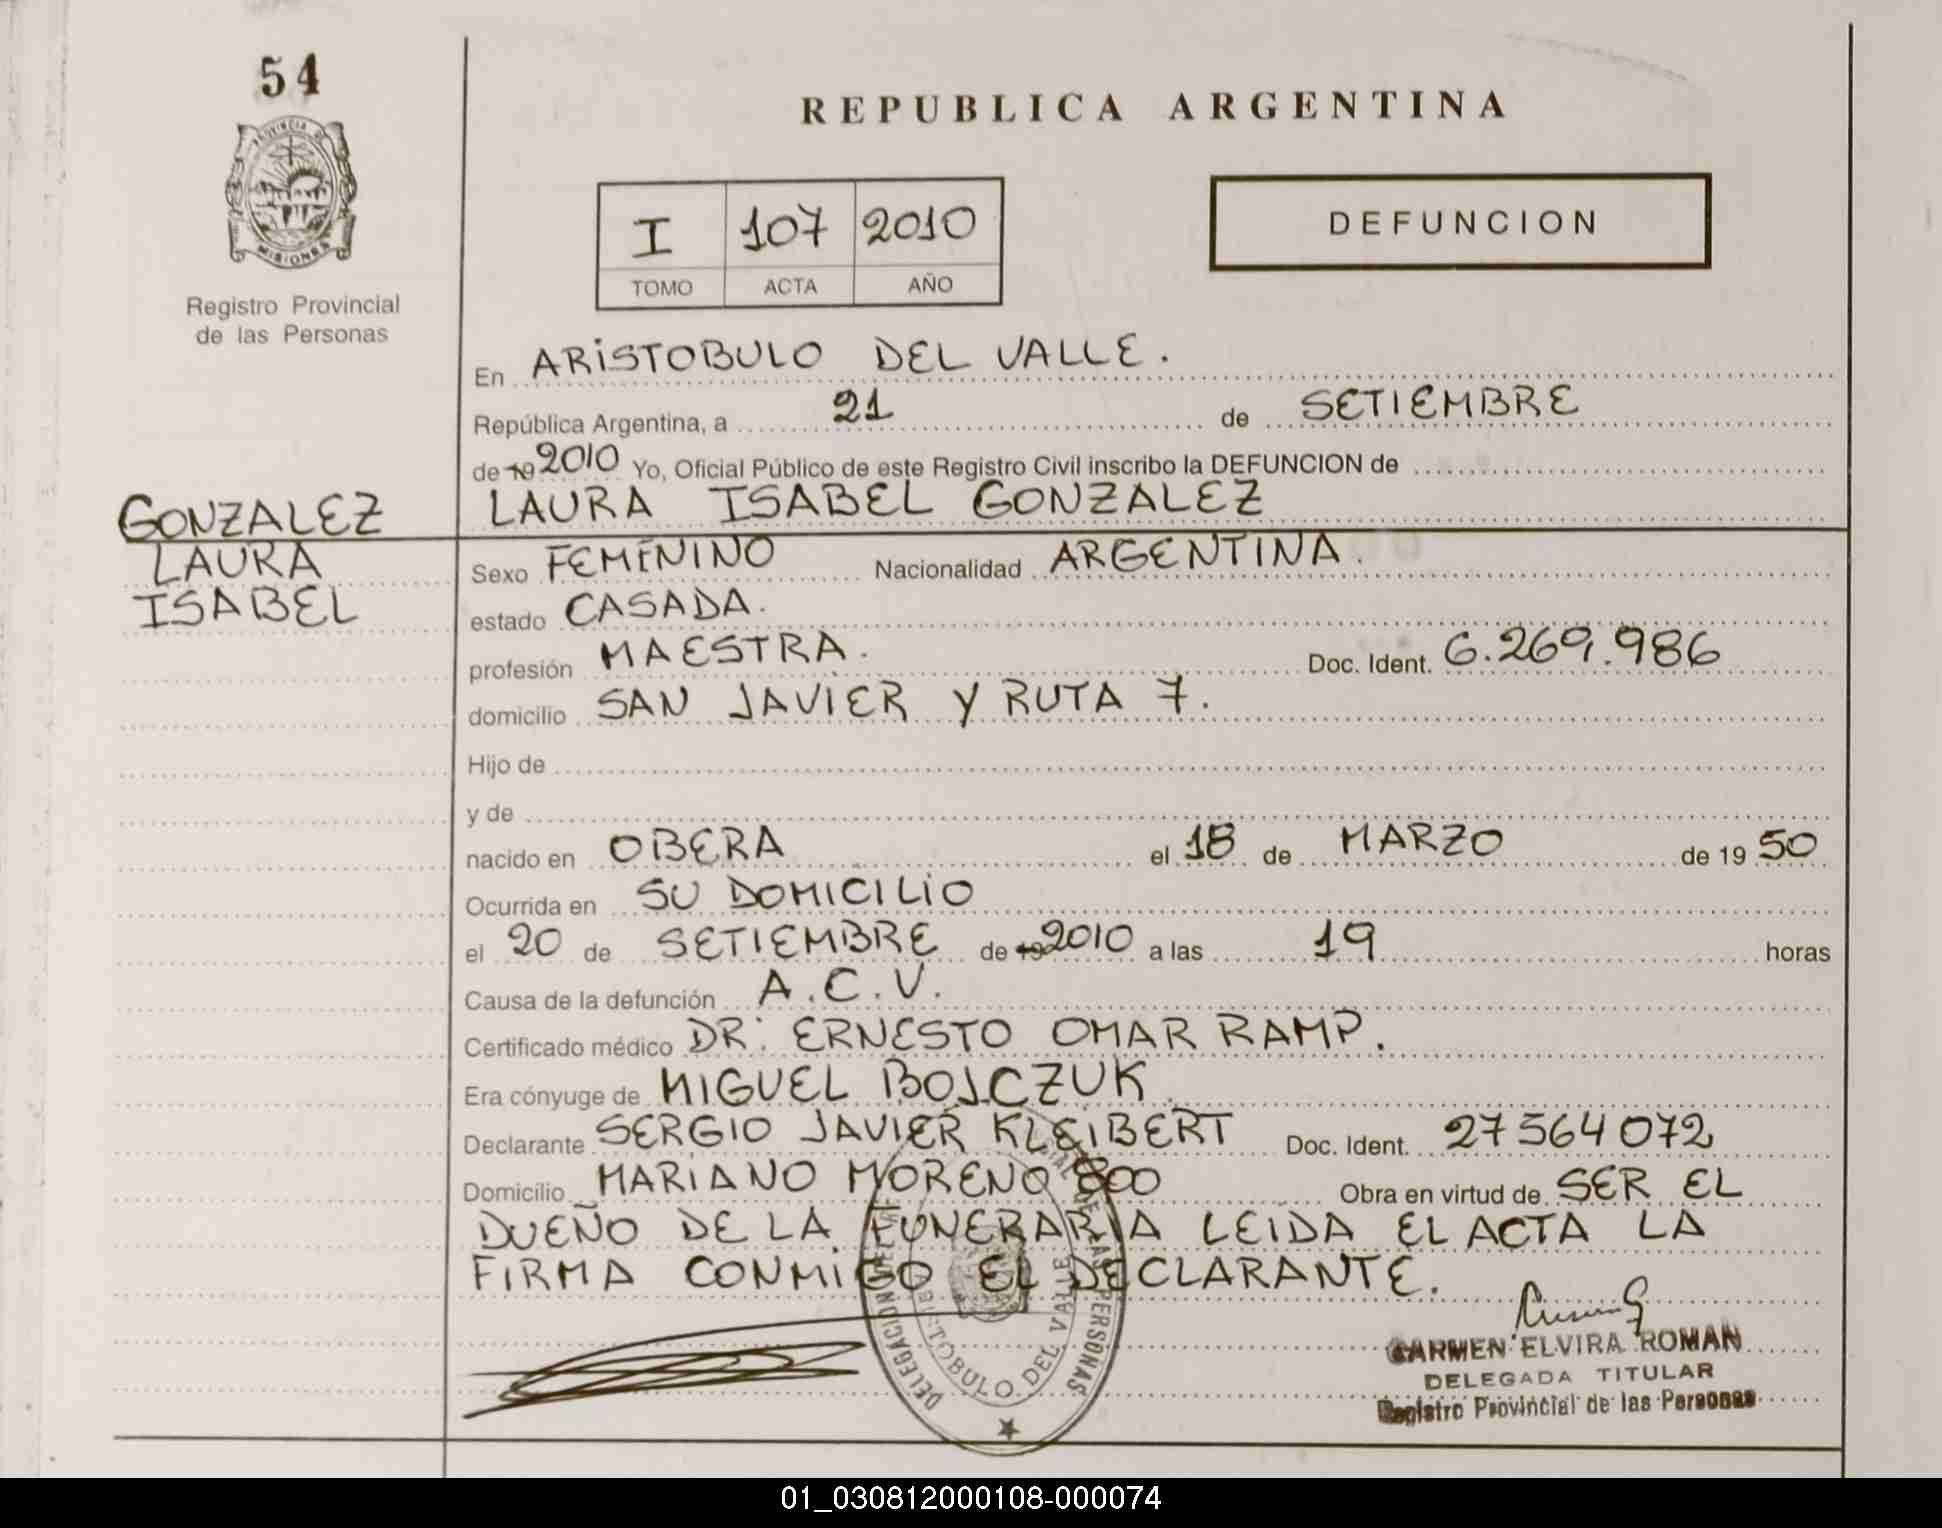 54
PROVINCIA DE
MISIONES
Registro Provincial
de las Personas
REPUBLICA ARGENTINA
I 107 2010
TOMO ACTA AÑO
DEFUNCION
En ARISTOBULO DEL VALLE.
República Argentina, a 21 de SETIEMBRE
de 19 2010 Yo, Oficial Público de este Registro Civil inscribo la DEFUNCION de
LAURA ISABEL GONZALEZ
GONZALEZ
LAURA
ISABEL
Sexo FEMENINO Nacionalidad ARGENTINA.
estado CASADA.
profesión MAESTRA. Doc. Ident. 6.269.986
domicilio SAN JAVIER Y RUTA 7.
Hijo de
y de
nacido en OBERA el 18 de MARZO de 19 50
Ocurrida en SU DOMICILIO
el 20 de SETIEMBRE de 19 2010 a las 19 horas
Causa de la defunción A.C.V.
Certificado médico DR: ERNESTO OMAR RAMP.
Era cónyuge de MIGUEL BOJCZUK.
Declarante SERGIO JAVIER KLEIBERT Doc. Ident. 27564072
Domicilio MARIANO MORENO 800 Obra en virtud de SER EL
DUEÑO DE LA FUNERARIA LEIDA EL ACTA LA
FIRMA CONMIGO EL DECLARANTE.
DELEGACION DE LAS PERSONAS
ARISTOBULO DEL VALLE
CARMEN ELVIRA ROMAN
DELEGADA TITULAR
Registro Provincial de las Personas
01_030812000108-000074